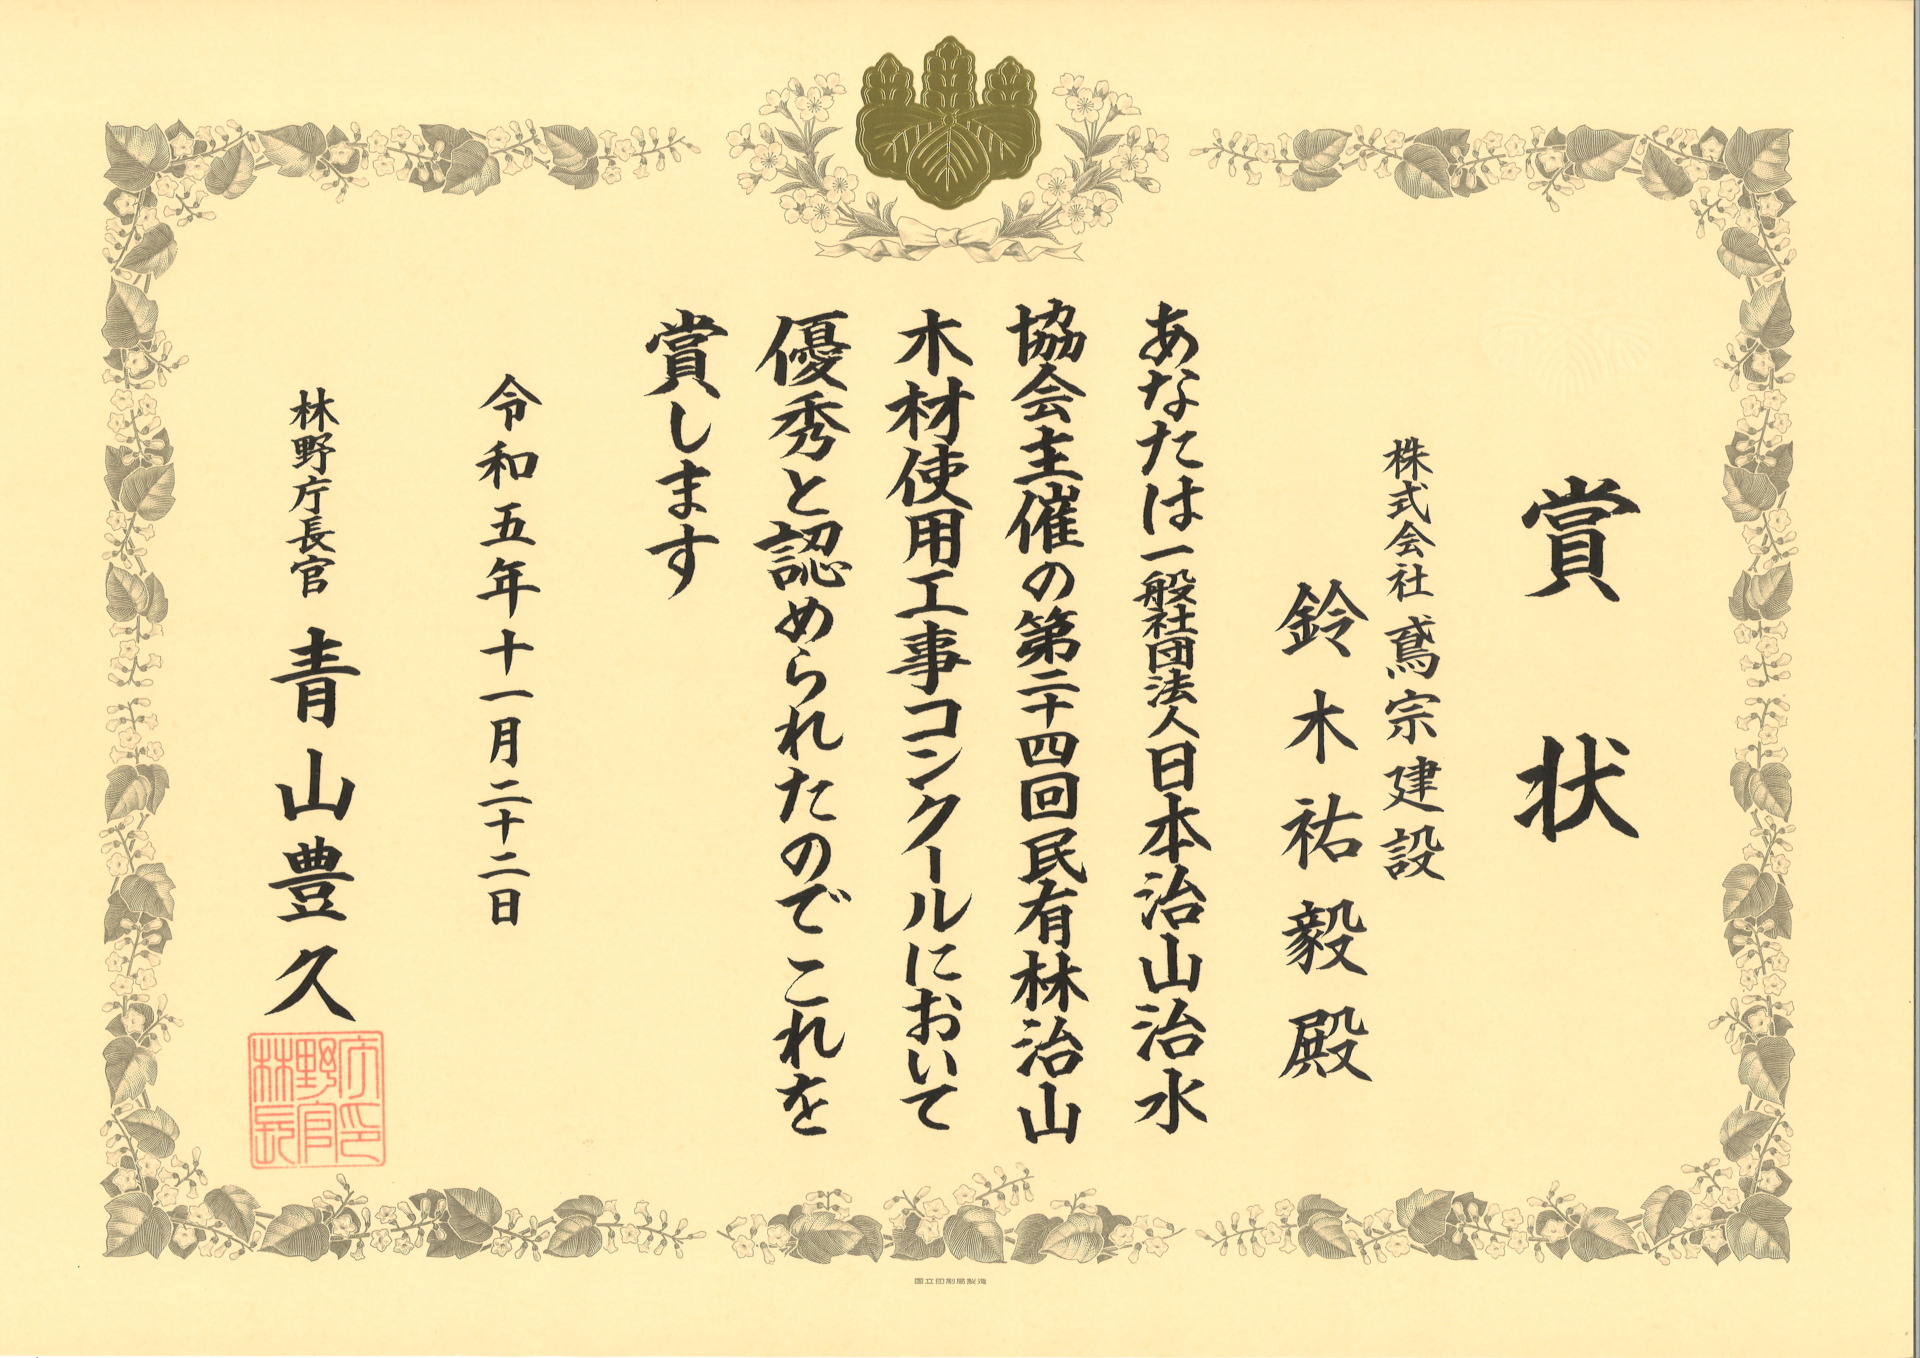 賞状
株式会社鳶宗建設
鈴木祐毅殿
あなたは一般社団法人日本治山治水
協会主催の第二十四回民有林治山
木材使用工事コンクールにおいて
優秀と認められたのでこれを
賞します
令和五年十一月二十二日
林野庁長官 青山豊久
林野庁長官印
国立印刷局製造